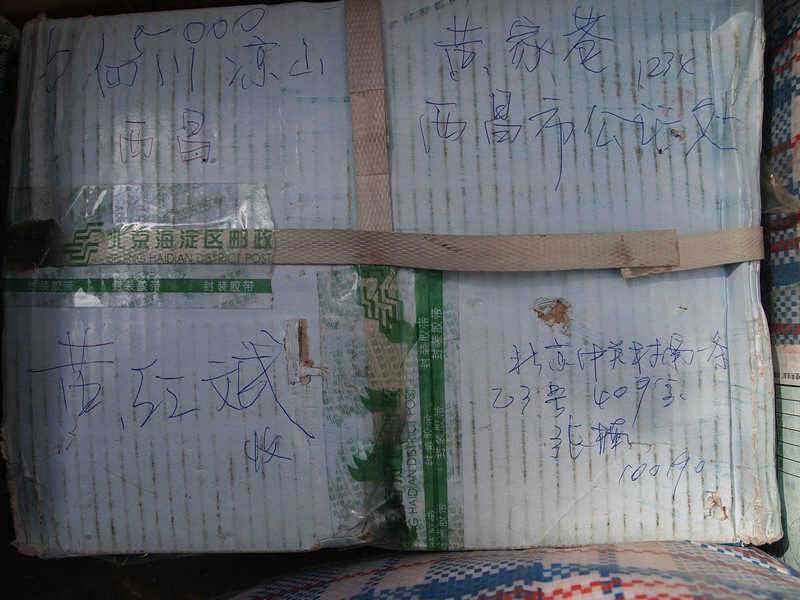 四川 凉山
西昌
黄家苍
西昌市公证处
北京海淀区邮政
BEIJING HAIDIAN DISTRICT POST
封装胶带 封装胶带 封装胶带
黄红斌
收
北京中关村南一条
乙3号 409室
张楠
100190
封装胶带 封装胶带 封装胶带
HAIDIAN DISTRICT POST